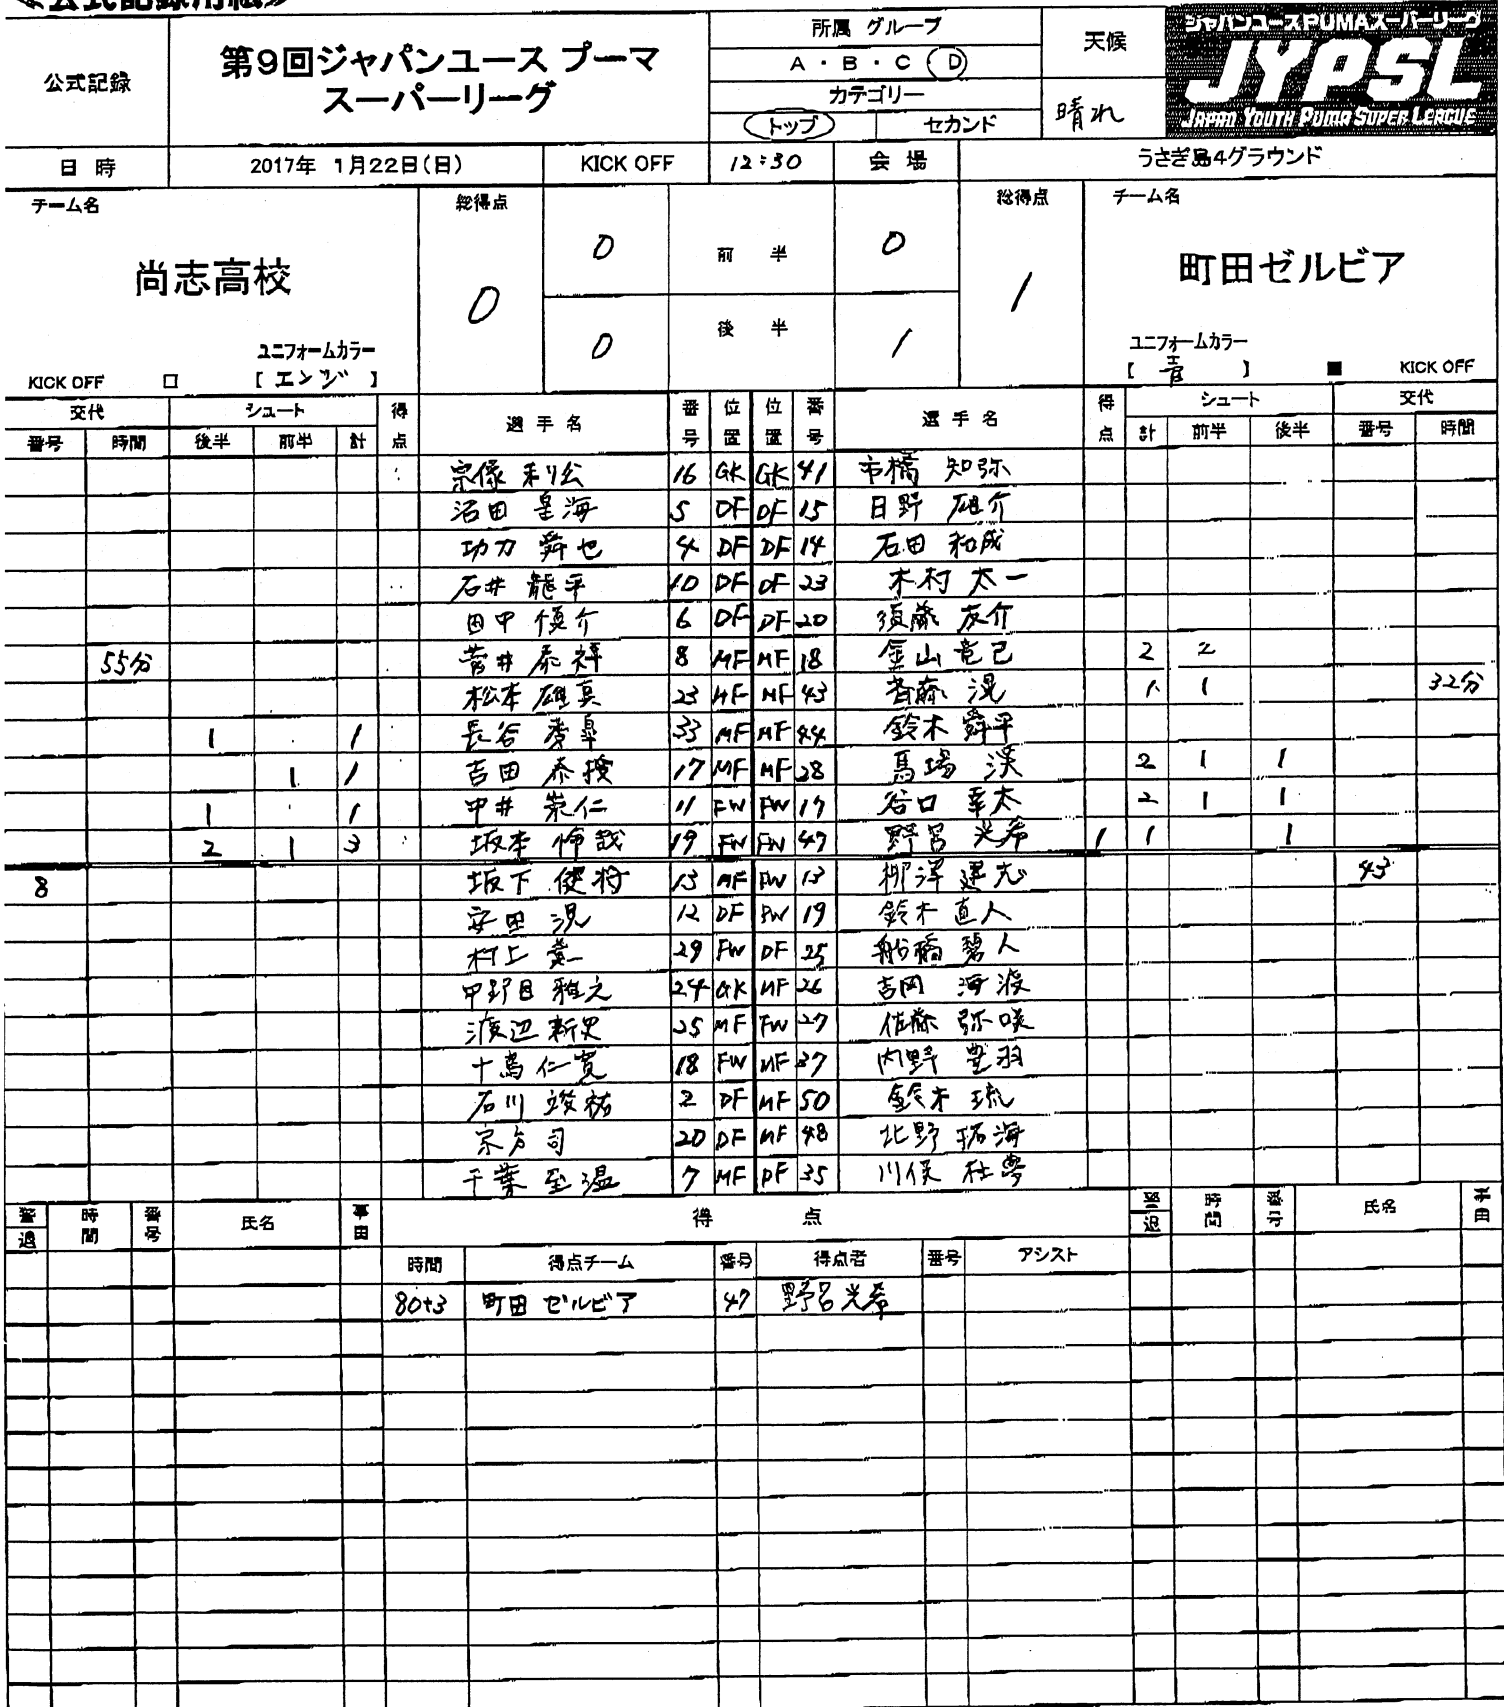 ≪公式記録用紙≫
公式記録
第9回ジャパンユース プーマ
スーパーリーグ
所属 グループ
A・B・C・D
カテゴリー
トップ セカンド
天候
晴れ
ジャパンユースPUMAスーパーリーグ
JYPSL
JAPAN YOUTH PUMA SUPER LEAGUE
日 時 2017年 1月22日(日) KICK OFF 12:30 会 場 うさぎ島4グラウンド
チーム名 総得点 総得点 チーム名
尚志高校 0 0 前 半 0 1 町田ゼルビア
0 後 半 1
ユニフォームカラー ユニフォームカラー
KICK OFF □ [ エンジ ] [ 青 ] ■ KICK OFF
交代 シュート 得点 選手名 番号 位置 位置 番号 選手名 得点 シュート 交代
番号 時間 後半 前半 計 計 前半 後半 番号 時間
宗像 利公 16 GK GK 41 市橋 知弥
沼田 皇海 5 DF DF 15 日野 雄介
功力 舜也 4 DF DF 14 石田 和成
石井 龍平 10 DF DF 23 木村 太一
田中 慎介 6 DF DF 20 須藤 友介
55分 菅井 泰祥 8 MF MF 18 金山 竜己 2 2
松本 雄真 23 MF MF 43 斉藤 滉 1 1 32分
1 1 長谷 33 MF MF 44 鈴木 舜平
1 1 吉田 泰授 17 MF MF 28 馬場 渓 2 1 1
1 1 中井 崇仁 11 FW FW 17 谷口 幸太 2 1 1
2 1 3 坂本 怜哉 19 FW FW 47 野呂 光希 1 1 1
8 坂下 健将 13 MF FW 13 柳澤 建志 43
安田 滉 12 DF FW 19 鈴木 直人
村上 29 FW DF 25 船橋 碧人
中野目 雅之 24 GK MF 26 吉岡 海渡
渡辺 新史 25 MF FW 27 佐藤 弥咲
十島 仁寛 18 FW MF 37 内野 豊羽
石川 竣祐 2 DF MF 50 鈴木 琉
宗方 司 20 DF MF 48 北野 拓海
千葉 至温 7 MF DF 35 川俣 杜夢
警退 時間 番号 氏名 事由 得 点 警退 時間 番号 氏名 事由
時間 得点チーム 番号 得点者 番号 アシスト
80+3 町田 ゼルビア 47 野呂光希